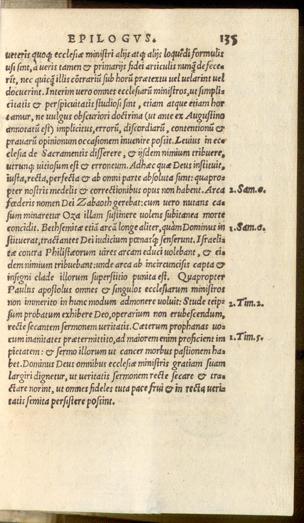 EPILOGVS. 135
ueteris quoq; ecclesiæ ministri alijs atq; alijs loquẽdi formulis
usi sint, à uerit tamen & primarijs fidei articulis nunq̃ defece-
rĩt, nec quicq̃ illis cõtrariũ sub horũ prætextu uel uelarint uel
docuerint. Interim uero omnes ecclesiarũ ministros, ut simpli-
citatis & perspicuitatis studiosi sint, etiam atque etiam hor
tamur, ne uulgus obscuriori doctrina (ut ante ex Augustino
annotatũ est) implicitus, errorũ, discordiarũ, contentionũ &
prauarũ opinionum occasionem inuenire possit. Leuius in ec-
clesia de Sacramentis differere, & ijsdem nimium tribuere,
utrunq; uitiosum est & erroneum. Adhæc quæ Deus instituit,
iusta, recta, perfecta & ab omni parte absoluta sunt: quapro-
pter nostris medelis & correctionibus opus non habent. Arca 2. Sam. 6.
fœderis nomen Dei Zabaoth gerebat: cum uero nutans ca-
sum minaretur Oza illam sustinere uolens subitanea morte
concidit. Bethsemitæ etiã arcã longe aliter, quàm Dominus in 1. Sam. 6.
stituerat, tractantes Dei iudicium pœnasq; senserunt. Israeli
tæ contra Philistæorum uires arcam educi uolebant, & ei
dem nimium tribuebant: unde arca ab incircuncisis capta &
insigni clade illorum superstitio punita est. Quapropter
Paulus apostolus omnes & singulos ecclesiarum ministros
non immerito in hunc modum admonere uoluit: Stude teip- 2. Tim. 2.
sum probatum exhibere Deo, operarium non erubescendum,
recte secantem sermonem ueritatis. Cæterum prophanas uo-
cum inanitates prætermittito, ad maiorem enim proficient im 1. Tim. 5.
pietatem: & sermo illorum ut cancer morbus pastionem ha-
bet. Dominus Deus omnibus ecclesiæ ministris gratiam suam
largiri dignetur, ut ueritatis sermonem recte secare & tra-
ctare norint, ut omnes fideles tuta pace frui & in rectæ ueri-
tatis semita persistere possint.